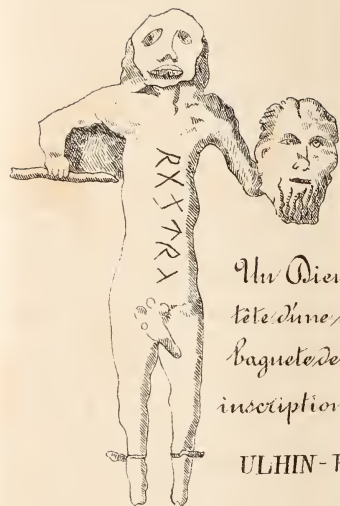 Un Dieu
tête d'une
baguete de
inscription
ULHIN -